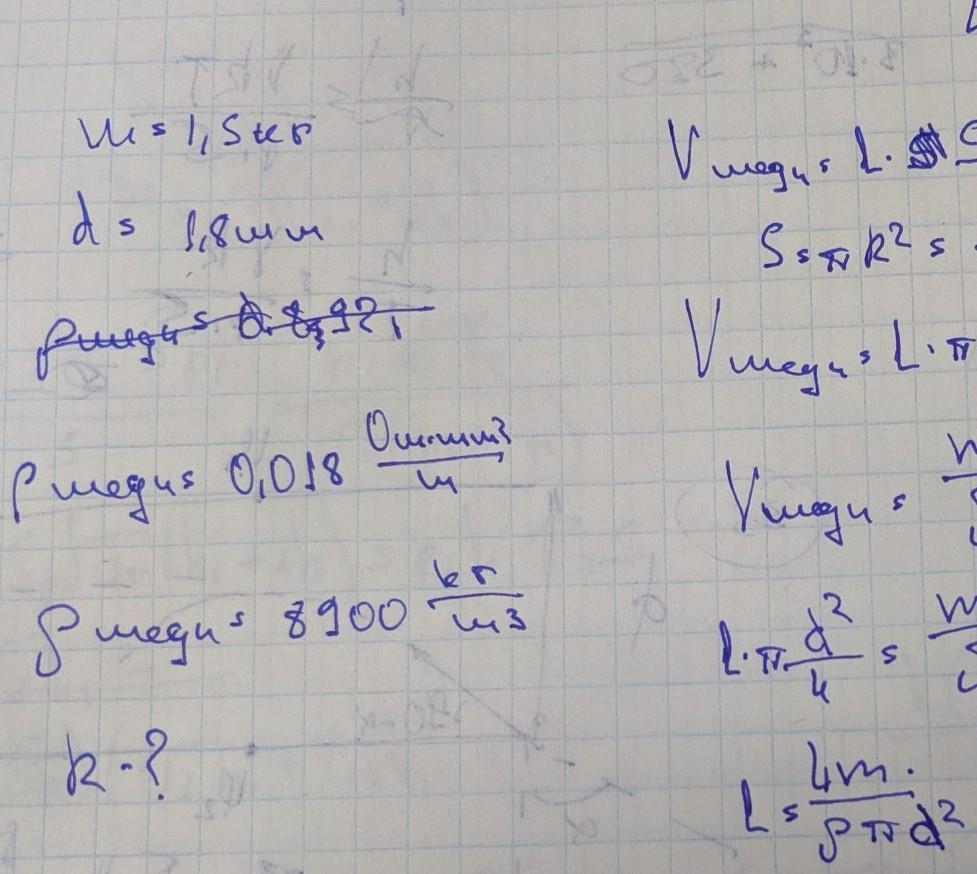 m = 1,5 кг
d = 1,8 мм
ρ меди = 8,92
ρ меди = 0,018 Ом·мм³/м
ρ меди = 8900 кг/м³
R - ?
V меди = L · S
S = πR² =
V меди = L · π
V меди = m
L · π d²/4 = m
L = 4m / ρπd²